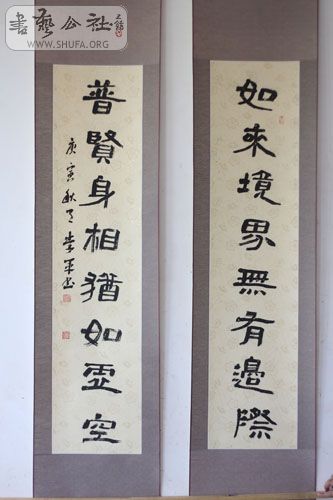 如来境界無有邊際
普賢身相猶如虚空
庚寅秋月李軍书
書藝公社
WWW.SHUFA.ORG